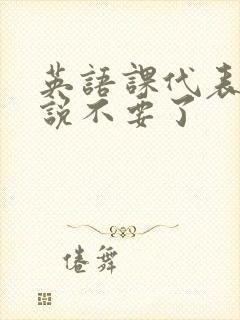 英語課代表
説不要了
倦舞